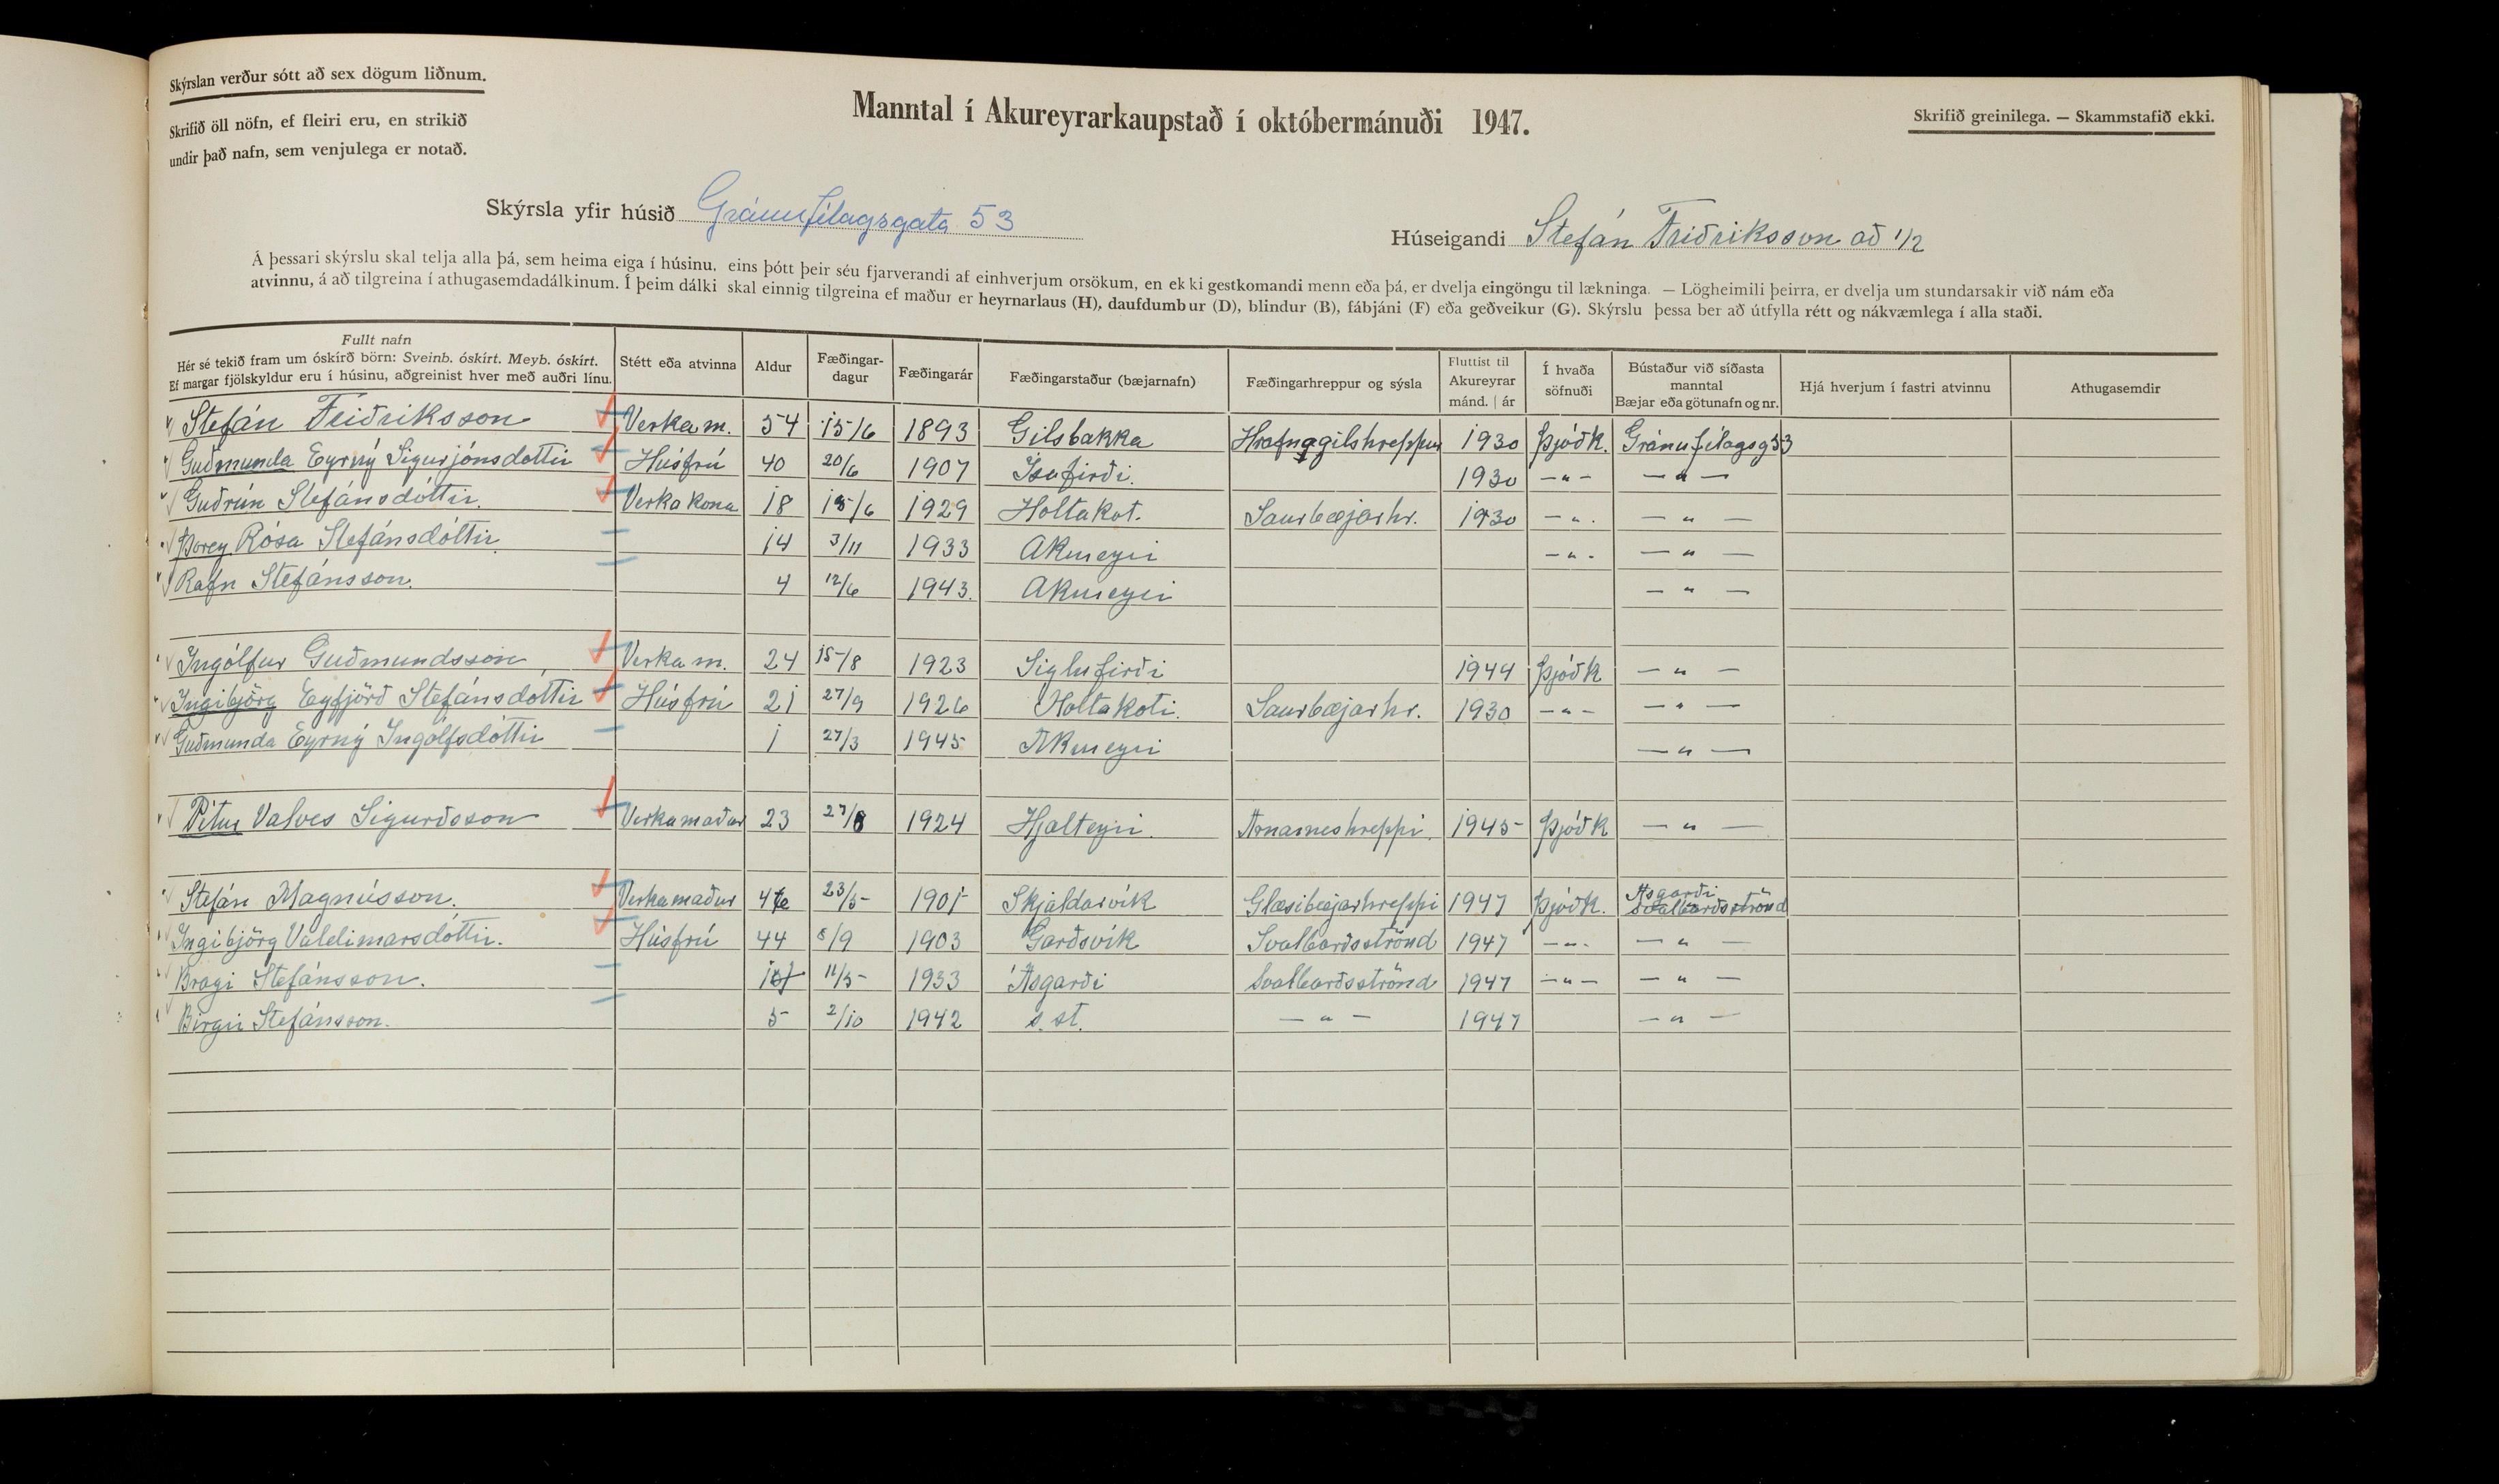 Skýrslan verður sótt að sex dögum liðnum.
Skrifið öll nöfn, ef fleiri eru, en strikið
undir það nafn, sem venjulega er notað.
Manntal í Akureyrarkaupstað í októbermánuði 1947.
Skrifið greinilega. — Skammstafið ekki.
Skýrsla yfir húsið Gránufélagsgata 53
Húseigandi Stefán Friðriksson að 1/2
Á þessari skýrslu skal telja alla þá, sem heima eiga í húsinu, eins þótt þeir séu fjarverandi af einhverjum orsökum, en ekki gestkomandi menn eða þá, er dvelja eingöngu til lækninga. — Lögheimili þeirra, er dvelja um stundarsakir við nám eða
atvinnu, á að tilgreina í athugasemdadálkinum. Í þeim dálki skal einnig tilgreina ef maður er heyrnarlaus (H), daufdumbur (D), blindur (B), fábjáni (F) eða geðveikur (G). Skýrslu þessa ber að útfylla rétt og nákvæmlega í alla staði.
Fullt nafn
Hér sé tekið fram um óskírð börn: Sveinb. óskírt. Meyb. óskírt.
Ef margar fjölskyldur eru í húsinu, aðgreinist hver með auðri línu.
Stétt eða atvinna
Aldur
Fæðingar-
dagur
Fæðingarár
Fæðingarstaður (bæjarnafn)
Fæðingarhreppur og sýsla
Fluttist til
Akureyrar
mánd. | ár
Í hvaða
söfnuði
Bústaður við síðasta
manntal
Bæjar eða götunafn og nr.
Hjá hverjum í fastri atvinnu
Athugasemdir
Stefán Friðriksson Verkam. 54 15/6 1893 Gilsbakka Hrafnagilshreppur 1930 Þjóðk. Gránufélagsg 53
Guðmunda Eyrný Sigurjónsdóttir Húsfrú 40 20/6 1907 Ísafirði. 1930 —"— — " —
Guðrún Stefánsdóttir. Verkakona 18 15/6 1929 Holtakot. Saurbæjarhr. 1930 —". — " —
Þórey Rósa Stefánsdóttir 14 3/11 1933 Akureyri —". — " —
Rafn Stefánsson. 4 12/6 1943. Akureyri — " —
Ingólfur Guðmundsson, Verkam. 24 15/8 1923 Siglufirði 1944 Þjóðk — " —
Ingibjörg Eyfjörð Stefánsdóttir Húsfrú 21 27/9 1926 Holtakoti. Saurbæjarhr. 1930 —"— — " —
Guðmunda Eyrný Ingólfsdóttir 1 27/3 1945 Akureyri — " —
Pétur Valves Sigurðsson Verkamaður 23 27/8 1924 Hjalteyri. Arnarneshreppi. 1945 Þjóðk — " —
Stefán Magnússon. Verkamaður 46 23/5 1901 Skjaldarvík Glæsibæjarhreppi 1947 Þjóðk. Ásgarði Svalbarðsströnd
Ingibjörg Valdimarsdóttir. Húsfrú 44 8/9 1903 Garðsvík Svalbarðsströnd 1947 —"- — " —
Bragi Stefánsson. 11/5 1933 Ásgarði Svalbarðsströnd 1947 —"— — " —
Birgir Stefánsson. 5 2/10 1942 s. st. — " — 1947 — " —